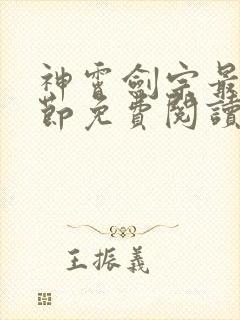 神霄劍宗最
節免費閱讀
王振義